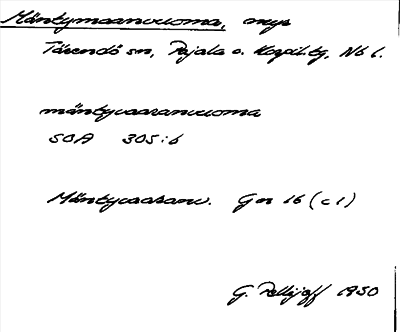 Mäntymaanvuoma, myr
Tärendö sn, Pajala o. Korpil. tg, Nb l.
mäntyvaaranvuoma
SOA 305:6
Mäntyvaarav. Gm 16 (c 1)
G. Pellijeff 1950